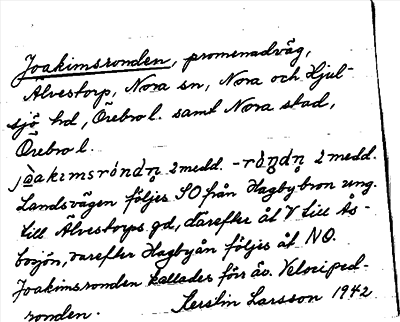 Joakimsronden, promenadväg,
Älvestorp, Nora sn, Nora och Hjul-
sjö hd, Örebro l. samt Nora stad,
Örebro l.
2 medd. 2 medd.
Landsvägen följes SO från Hagbybron ung.
till Älvestorps gd, därefter åt V till Ås-
bosjön, varefter Hagbyån följes åt NO.
Joakimsronden kallades förr äv. Velociped-
ronden. Kerstin Larsson 1942